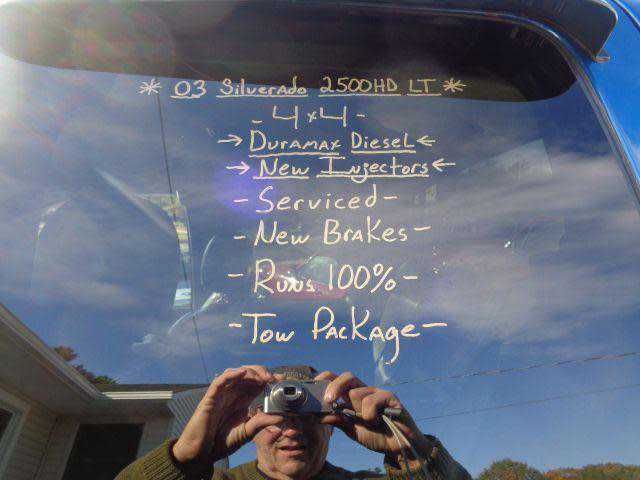 * 03 Silverado 2500HD LT *
- 4x4 -
→ Duramax Diesel ←
→ New Injectors ←
- Serviced -
- New Brakes -
- Runs 100% -
- Tow Package -